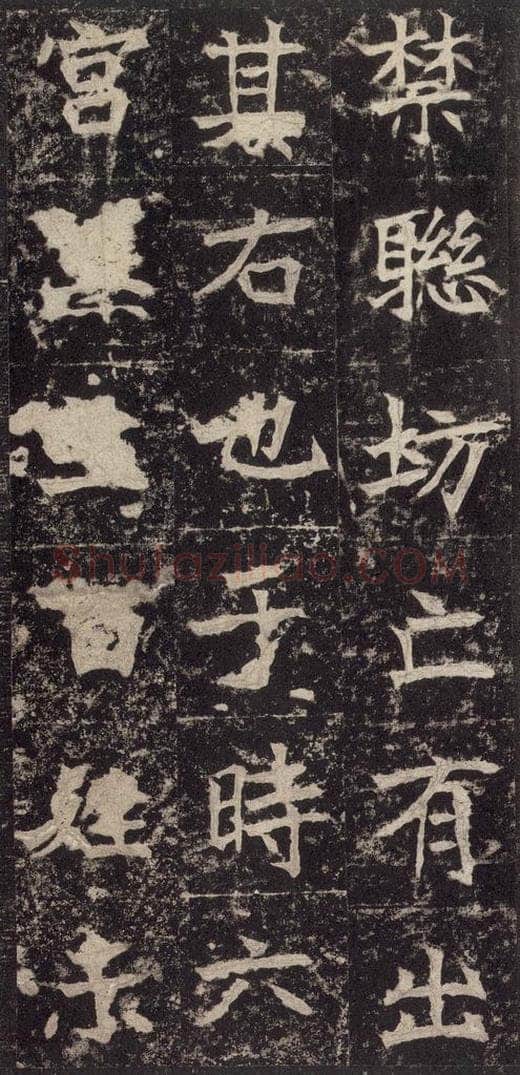 禁聯坊亡有出
其右也于時六
宮
百姓
Shufaziliao.COM